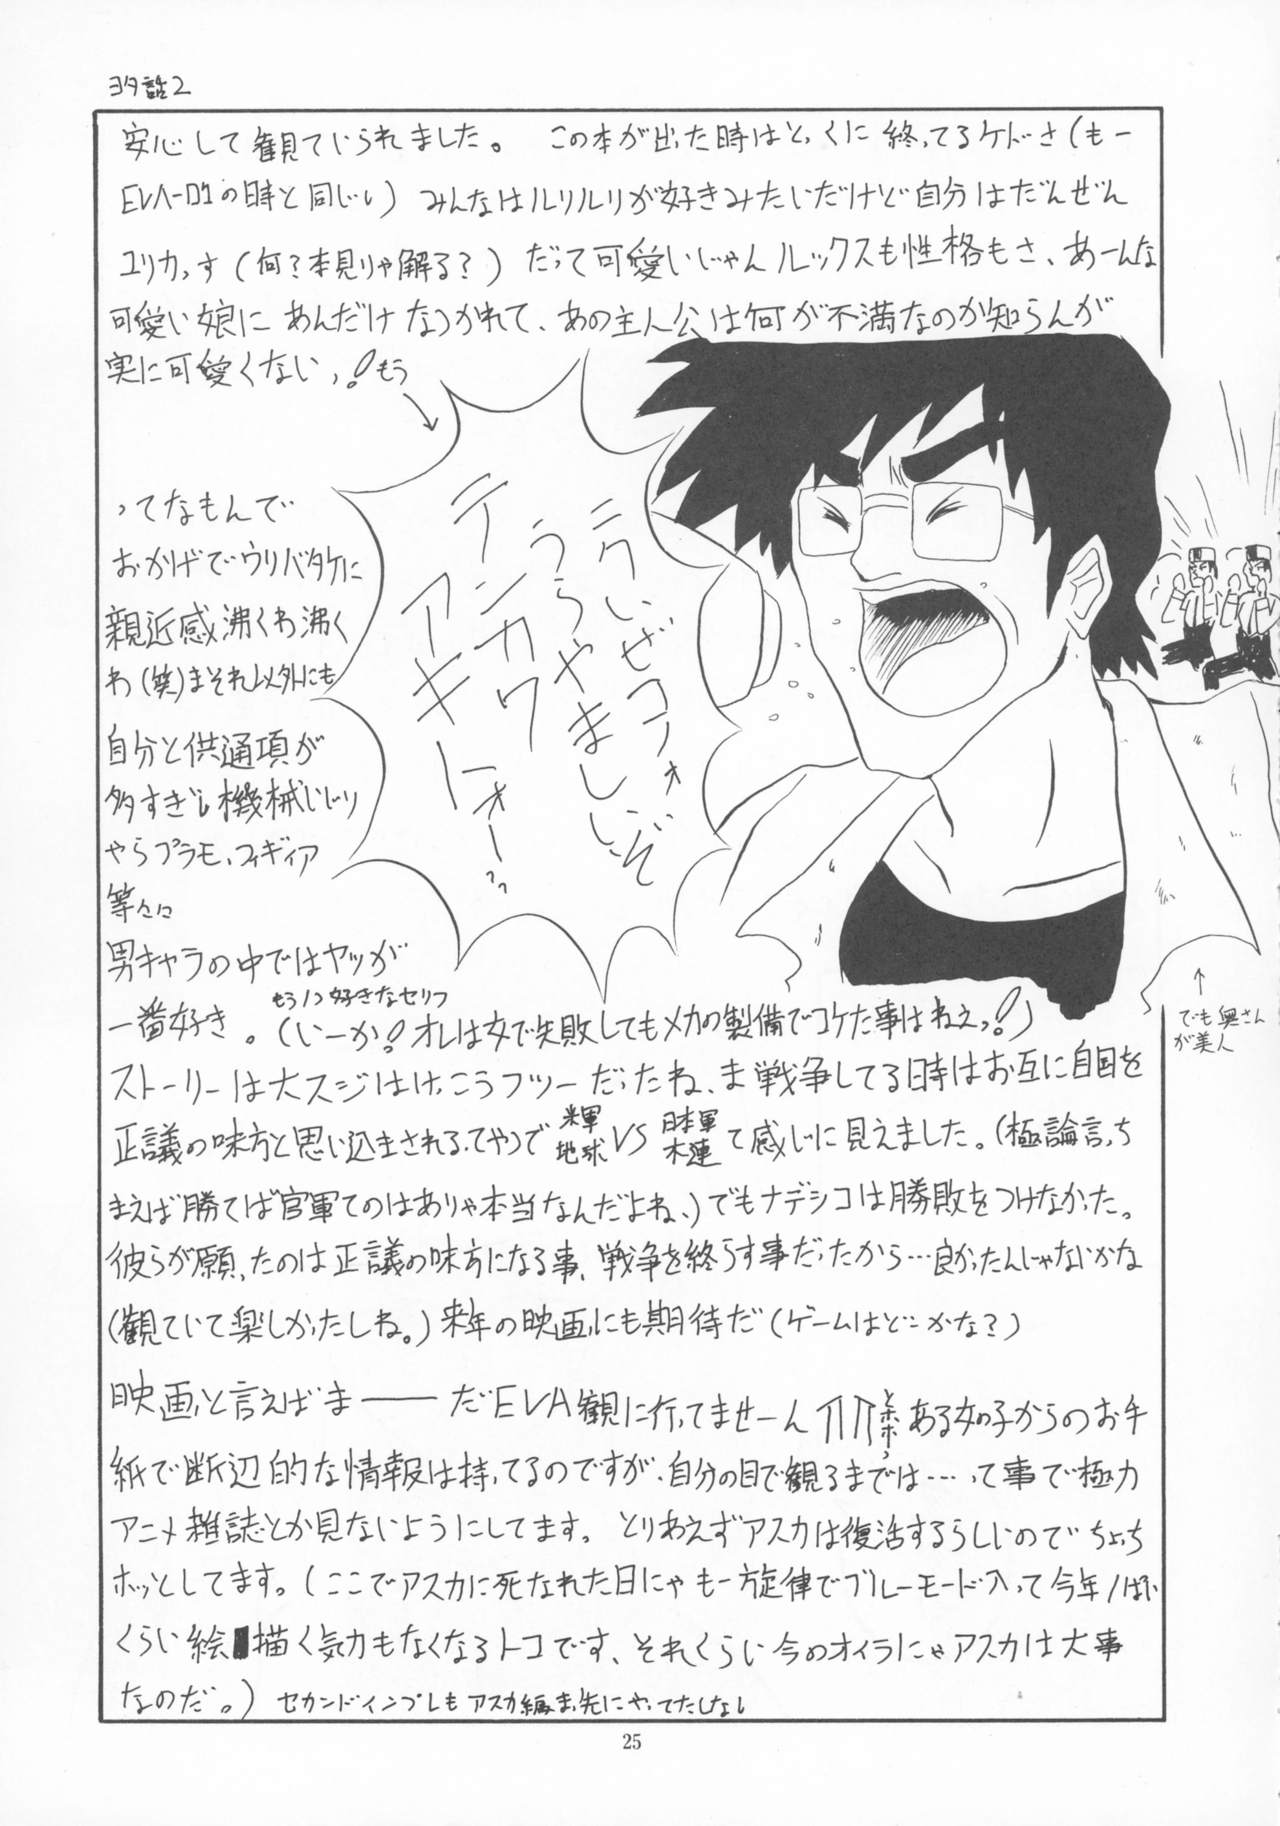 ヨタ話2
安心して観ていられました。 この本が出た時はとっくに終ってるケドさ(もー
EVA-01の時と同じい) みんなはルリルリが好きみたいだけど自分はだんぜん
ユリカっす(何?本見りゃ解る?) だって可愛いじゃんルックスも性格もさ、あーんな
可愛い娘にあんだけなつかれて、あの主人公は何が不満なのか知らんが
実に可愛くないっ!もう
ニクいぜコノォ
うらやましいぞ
テンカワ
アキトォーっ
ってなもんで
おかげでウリバタケに
親近感沸くわ沸く
わ(笑)まそれ以外にも
自分と供通項が
多すぎし機械いじり
やらプラモ、フィギィア
等々に
男キャラの中ではヤツが
一番好き。(いーか!オレは女で失敗してもメカの製備でコケた事はねぇっ!)
もう1つ好きなセリフ
でも奥さん
が美人
ストーリーは大スジはけっこうフツーだったね、ま戦争してる時はお互に自国を
正議の味方と思い込まされるってやつで 米軍地球 VS 日本軍木連 て感じに見えました。(極論言っち
まえば勝てば官軍てのはありゃ本当なんだよね、)でもナデシコは勝敗をつけなかった。
彼らが願ったのは正議の味方になる事、戦争を終らす事だったから…良かったんじゃないかな
(観ていて楽しかったしね。)来年の映画にも期待だ(ゲームはどーかな?)
映画と言えばま――だEVA観に行ってませーん トホホっ ある女の子からのお手
紙で断辺的な情報は持ってるのですが、自分の目で観るまでは……って事で極力
アニメ雑誌とか見ないようにしてます。とりあえずアスカは復活するらしいのでちょっち
ホッとしてます。(ここでアスカに死なれた日にゃもー旋律でブルーモード入って今年1ぱい
くらい絵描く気力もなくなるトコです、それくらい今のオイラにゃアスカは大事
なのだ。) セカンドインプレもアスカ編ま先にやってたしなし
25